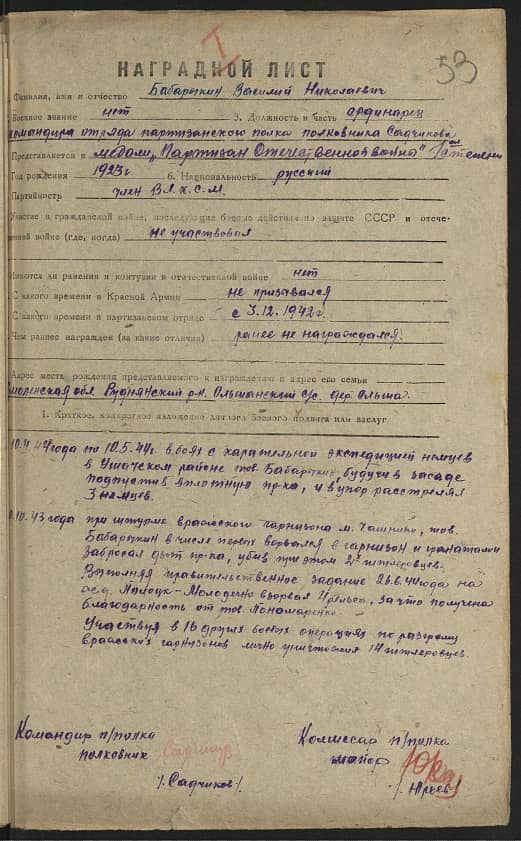 I
53
НАГРАДНОЙ ЛИСТ
Фамилия, имя и отчество Бабарыкин Василий Николаевич
Военное звание нет 3. Должность и часть ординарец
командира отряда партизанского полка полковника Садчикова
Представляется к медали „Партизан Отечественной войны" I степени
Год рождения 1923г 6. Национальность русский
Партийность член В.Л.К.С.М.
Участие в гражданской войне, последующие боевые действия по защите СССР и отече-
енной войне (где, когда) не участвовал
Имеются ли ранения и контузии в отечественной войне нет
С какого времени в Красной Армии не призывался
С какого времени в партизанском отряде с 3.12.1942г.
Чем раннее награжден (за какие отличия) ранее не награждался.
Адрес места рождения представляемого к награждению и адрес его семьи
Смоленская обл Руднянский р-н. Ольшанский с/с. дер. Ольша.
I. Краткое, конкретное изложение личного боевого подвига или заслуг.
года по 10.5.44г. в боях с карательной экспедицией немцев
в Ушачском районе тов. Бабарыкин, будучи в засаде
подпустив вплотную пр-ка, и в упор расстрелял
3 немцев.
10.43 года при штурме вражеского гарнизона м. Чашники, тов.
Бабарыкин в числе первых ворвался в гарнизон и гранатами
забросал дзот пр-ка, убив при этом 2х гитлеровцев.
Выполняя правительственное задание 26.6.44 года на
жд. Полоцк-Молодечно взорвал рельса, за что получена
благодарность от тов. Пономаренко.
Участвуя в 16 других боевых операциях по разгрому
вражеских гарнизонов лично уничтожил 14 гитлеровцев.
Командир п/полка
полковник
/. Садчиков/.
Комиссар п/полка
майор
/. Юрьев/